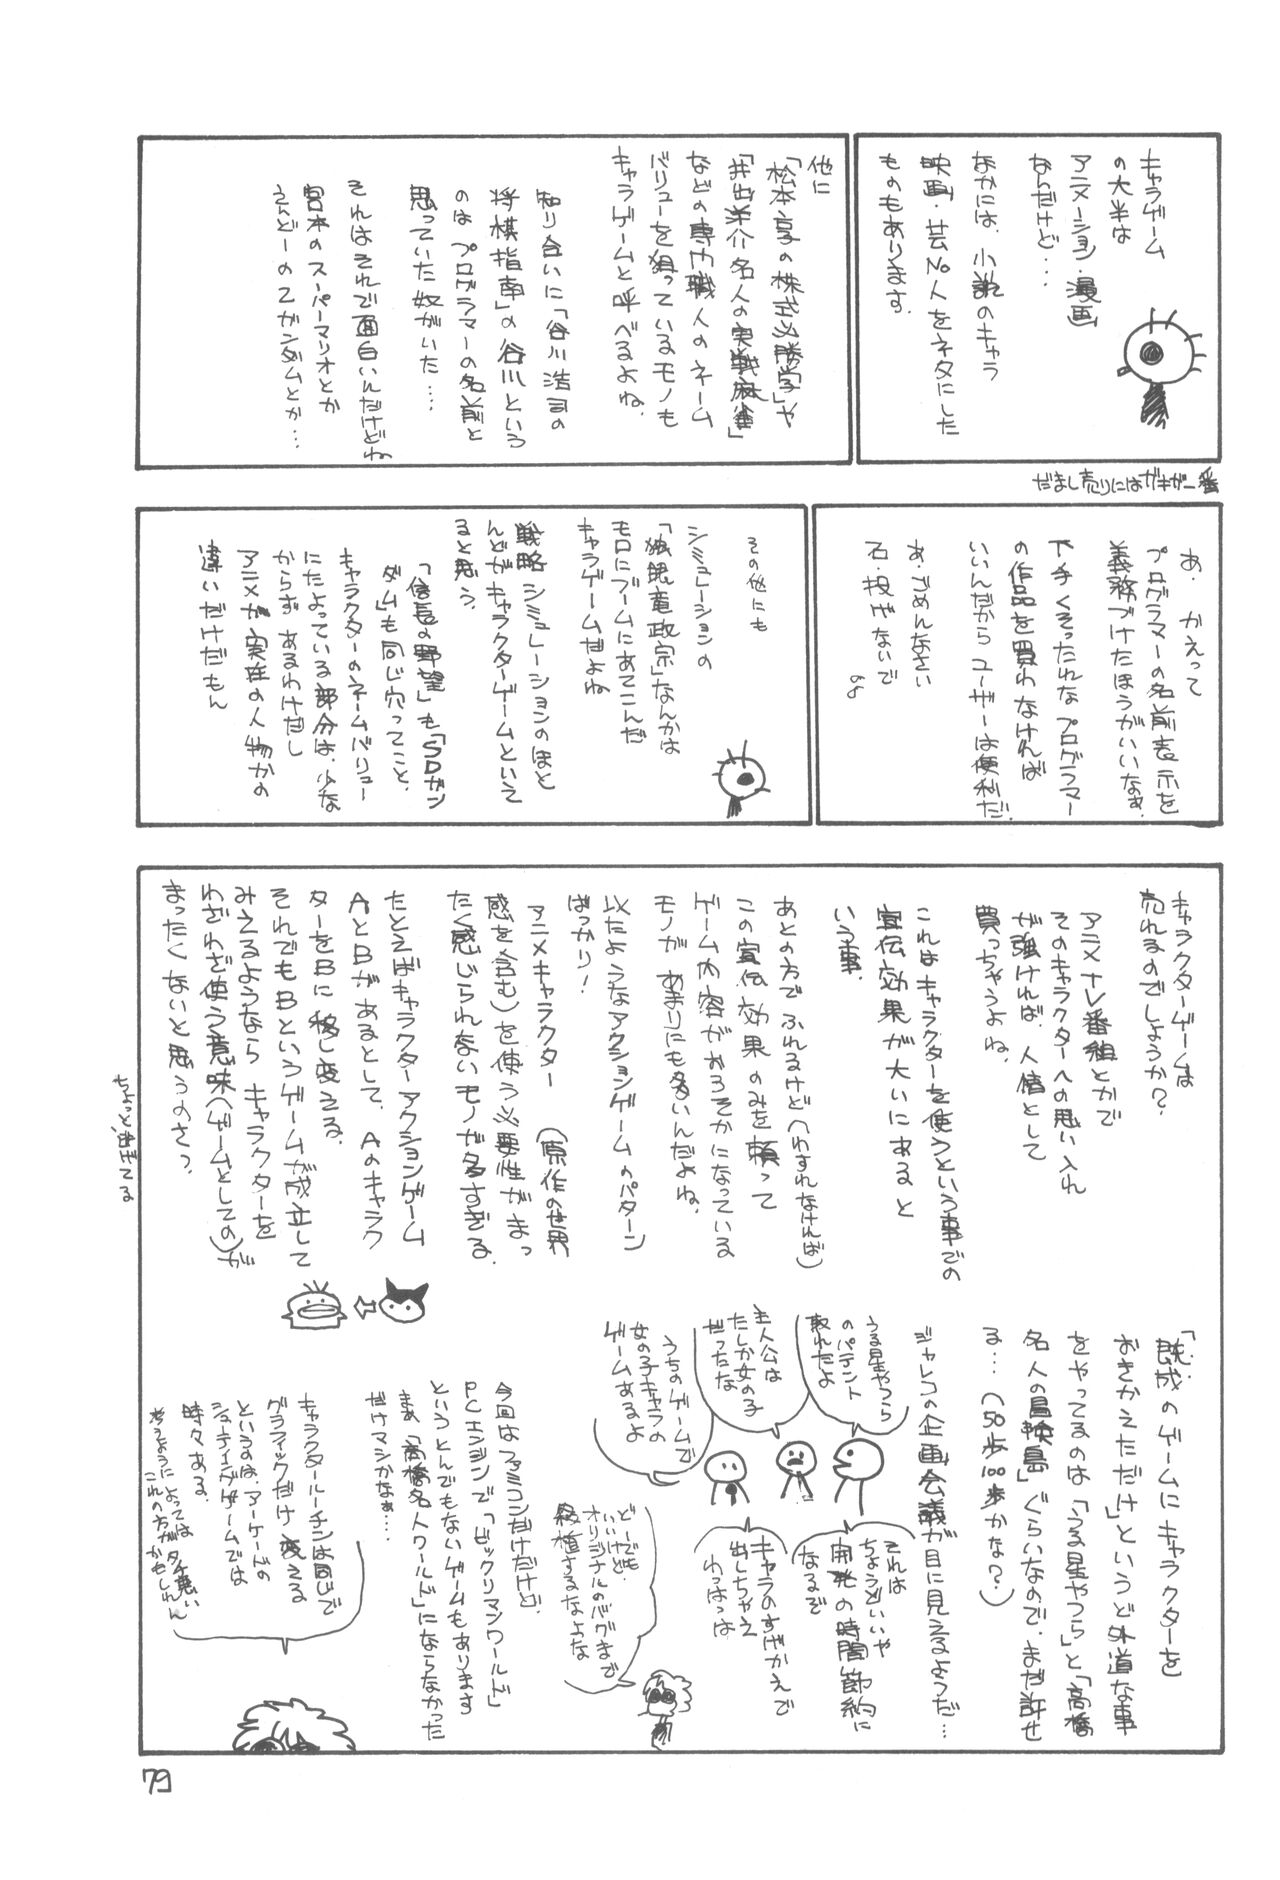 キャラゲーム
の大半は
アニメーション・漫画
なんだけど…
なかには、小説のキャラ
映画・芸No人をネタにした
ものもあります。
他に
「松本亨の株式必勝学」や
「井出洋介名人の実戦麻雀」
などの専門職人のネーム
バリューを狙っているモノも
キャラゲームと呼べるよね。
知り合いに「谷川浩司の
将棋指南」の谷川という
のは プログラマーの名前と
思っていた奴がいた…
それはそれで面白いんだけどね
宮本のスーパーマリオとか
えんどーのZガンダムとか…
だまし売りにはガキが一番
あ. かえって
プログラマーの名前表示を
義務づけたほうがいいなぁ.
下手くそったれな プログラマー
の作品を買わなければ
いいんだから ユーザーは便利だ.
あ.ごめんなさい
石・投げないで
その他にも
シミュレーションの
「独眼竜政宗」なんかは
モロにブームにあてこんだ
キャラゲームだよね
戦略シミュレーションのほと
んどがキャラクターゲームといて
ると思う.
「信長の野望」も「SDガン
ダム」も同じ穴ってこと.
キャラクターのネームバリュー
にたよっている部分は、少な
からず あるわけだし
アニメか実在の人物かの
違いだけだもん
キャラクターゲームは
売れるのでしょうか?
アニメ・TV番組とかで
そのキャラクターへの思い入れ
が強ければ、人情として
買っちゃうよね。
これはキャラクターを使うという事での
宣伝効果が大いにあると
いう事.
あとの方で ふれるけど(わすれなければ)
この宣伝効果のみを頼って
ゲーム内容がおろそかになっている
モノが あまりにも多いんだよね.
以たようなアクションゲームのパターン
ばっかり!
アニメキャラクター (原作の世界
感を含む)を使う必要性がまっ
たく感じられないモノが多すぎる.
たとえばキャラクターアクションゲーム
AとBがあるとして、Aのキャラク
ターをBに移し変える.
それでもBというゲームが成立して
みえるようなら キャラクターを
わざわざ使う意味(ゲームとしての)が
まったくないと思うのさっ
ちょっと逃げてる
「既成のゲームにキャラクターを
おきかえただけ」というど外道な事
をやってるのは「うる星やつら」と「高橋
名人の冒険島」ぐらいなので、まだ許せ
る…(50歩100歩かな?)
ジャレコの企画会議が目に見えるようだ…
うる星やつら
のパテント
取れたよ
主人公は
たしか女の子
だったな
うちのゲームで
女の子キャラの
ゲームあるよ
それは
ちょうどいいや
開発の時間節約に
なるぞ
キャラのすげかえで
出しちゃえ
わっはっは
どーでも
いいけど.
オリジナルのバグまで
移植するなよな
今回はファミコンだけだけど.
PCエンジンで「ビックリマンワールド」
というとんでもないゲームもあります
まぁ「高橋名人ワールド」にならなかった
だけマシかなぁ…
キャラクタールーチンは同じで
グラフィックだけ変える
というのは、アーケードの
シューティングゲームでは
時々ある.
考えようによっては
これの方がタチ悪い
かもしれん
79